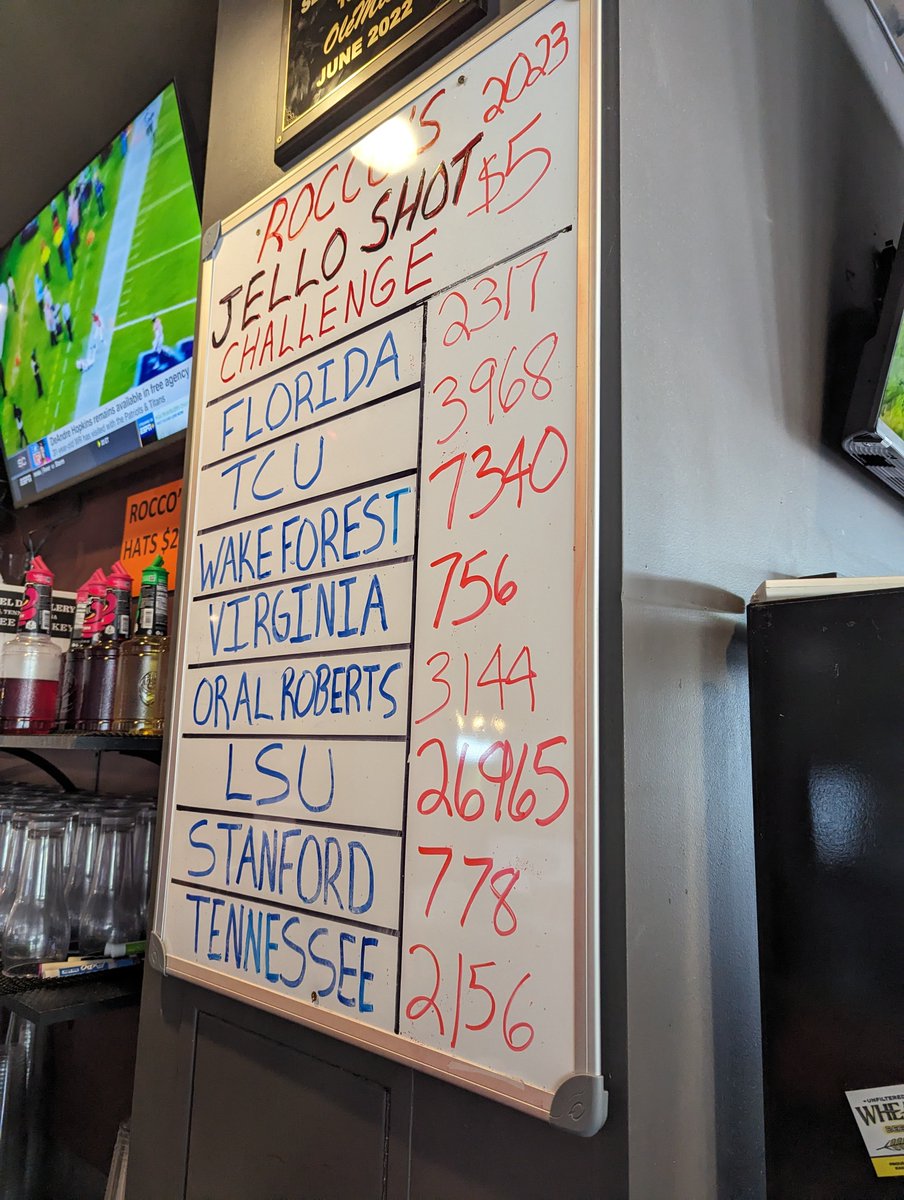 OleMiss
JUNE 2022
ROCCO'S 2023
JELLO SHOT $5
CHALLENGE
FLORIDA 2317
TCU 3968
WAKE FOREST 7340
VIRGINIA 756
ORAL ROBERTS 3144
LSU 26965
STANFORD 778
TENNESSEE 2156
DeAndre Hopkins remains available in free agency
31-year-old WR has visited with the Patriots & Titans
SC
ESPN
ROCCO'S
HATS $2
UNFILTERED
WHEA